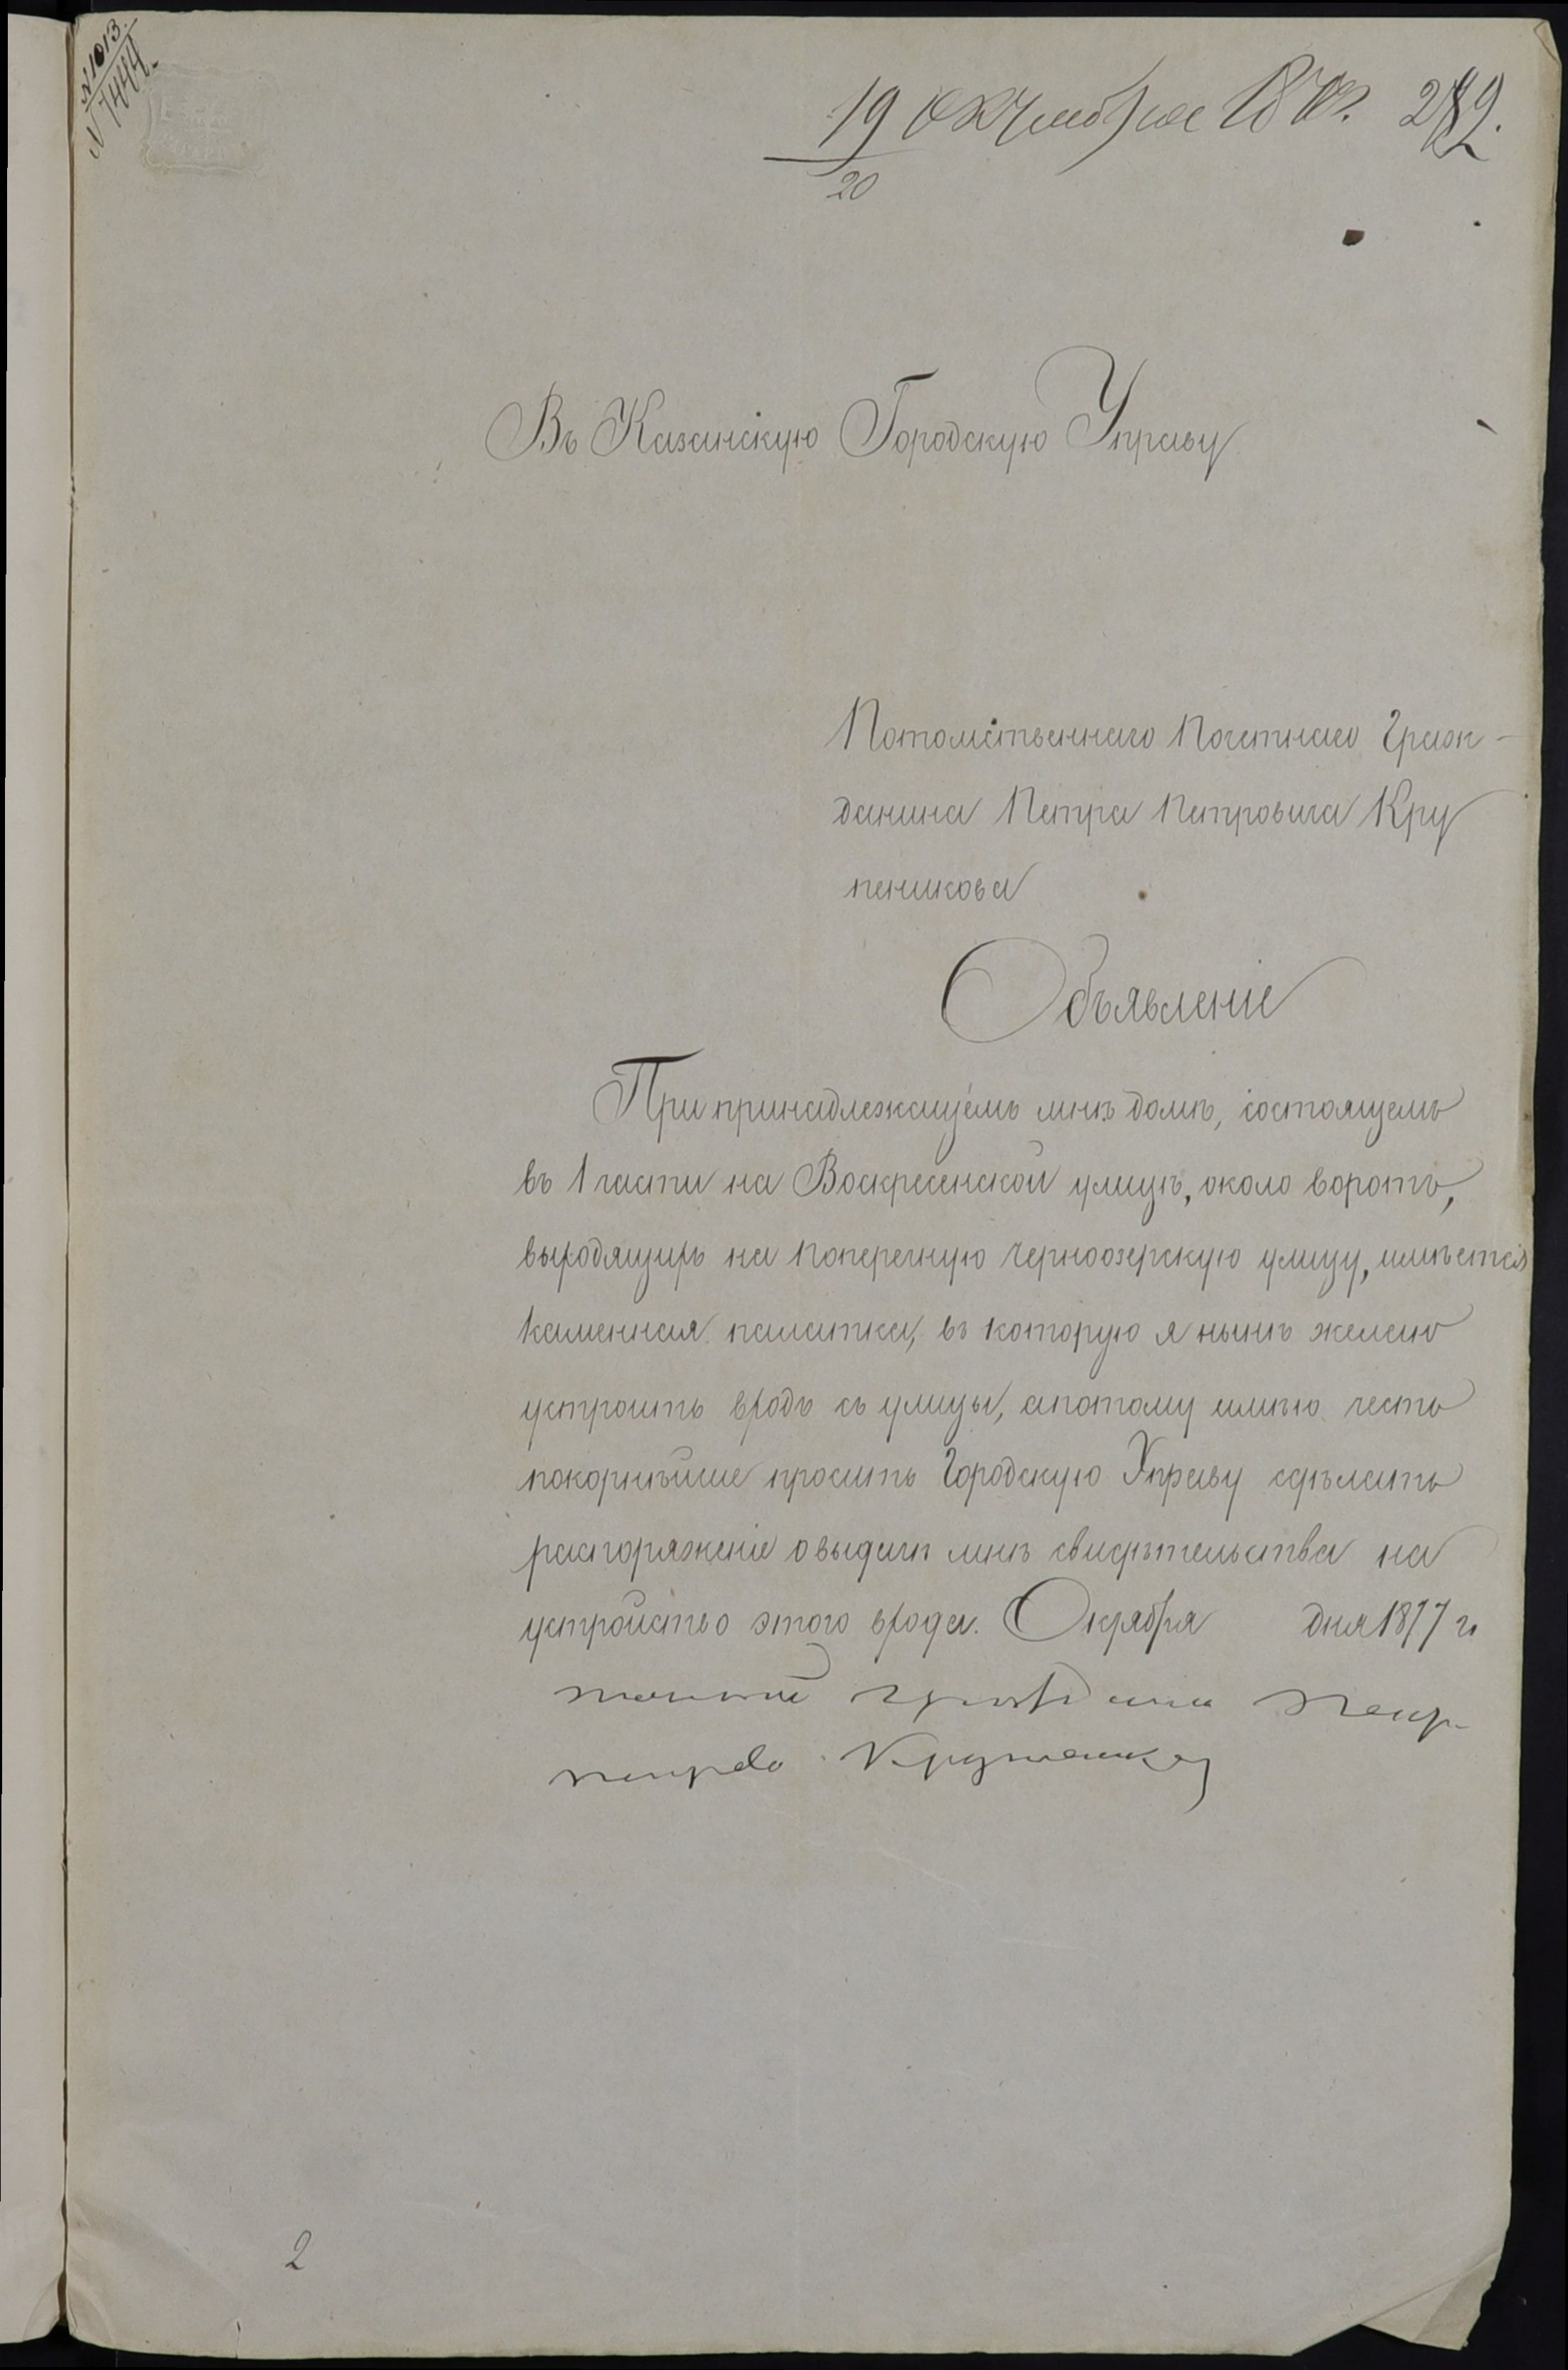 N 1013.
N 7444.
19 Октября 1877. 282.
20
Въ Казанскую Городскую Управу
Потомственнаго Почетнаго Граж-
данина Петра Петровича Кру
пеникова
Объявленіе
При принадлежащемъ мнѣ домѣ, состоящемъ
въ 1 части на Воскресенской улицѣ, около воротъ,
выходящихъ на поперечную Черноозерскую улицу, имѣется
каменная палатка, въ которую я нынѣ желаю
устроить входъ съ улицы, а потому имѣю честь
покорнѣйше просить Городскую Управу сдѣлать
распоряженіе о выдачи мнѣ свидѣтельства на
устройство этого входа. Октября дня 1877 г.
гражданинъ Петръ
Петровъ Крупениковъ
2